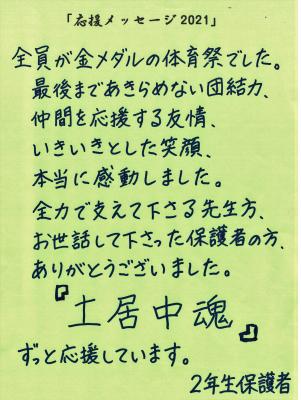 「応援メッセージ2021」
全員が金メダルの体育祭でした。
最後まであきらめない団結力、
仲間を応援する友情、
いきいきとした笑顔、
本当に感動しました。
全力で支えて下さる先生方、
お世話して下さった保護者の方、
ありがとうございました。
『土居中魂』
ずっと応援しています。
2年生保護者